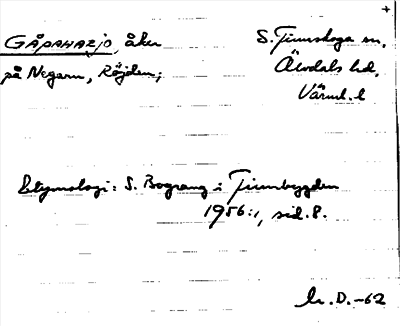 GÅPAHAZJO, åker
på Negarn, Röjden;
S. Finnskoga sn,
Älvdals hd,
Värml. l
Etymologi: S. Bograng i Finnbygden
1956:1, sid. 8.
Ln. D. -62